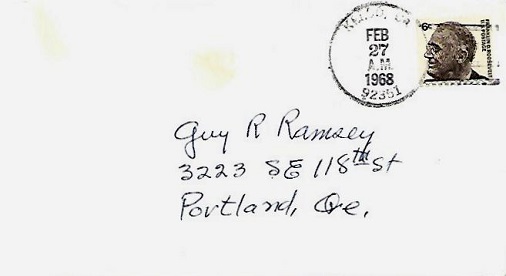 KELSO, CA
FEB
27
A.M.
1968
92351
6¢
FRANKLIN D. ROOSEVELT
U.S. POSTAGE
Guy R Ramsey
3223 SE 118th St
Portland, Ore.